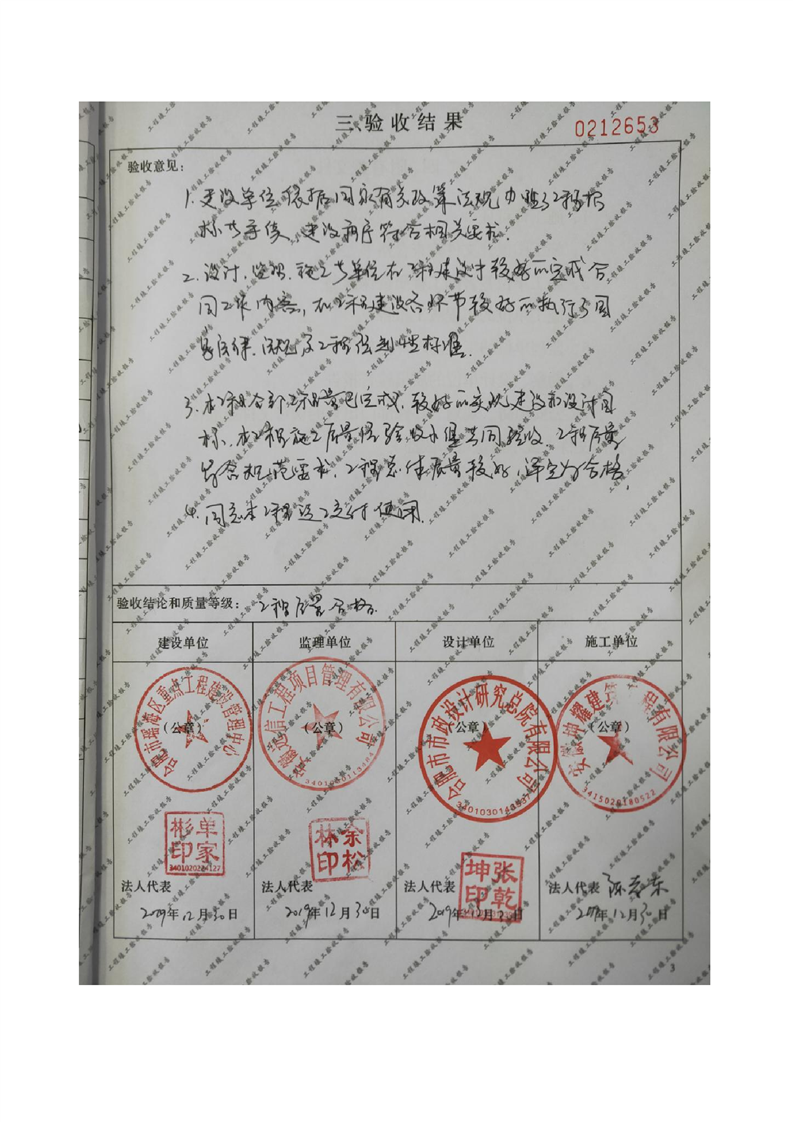 三、验收结果
0212653
验收意见：
1. 建设单位依据国家有关政策法规办理了工程招
标等手续，建设程序符合相关要求.
2. 设计、监理、施工等单位在工程建设中较好的完成合
同工作内容，在工程建设各环节较好的执行了国
家法律、法规及工程强制性标准.
3. 本工程全部工程量已完成，较好的实现建设和设计目
标、本工程施工质量经验收小组共同验收，工程质量
符合规范要求，工程总体质量较好，评定为合格，
4. 同意本工程竣工交付使用.
验收结论和质量等级：工程质量合格.
建设单位 监理单位 设计单位 施工单位
合肥市瑶海区重点工程建设管理中心
（公章）
工程项目管理有限公司
（公章）
合肥市市政设计研究总院有限公司
（公章）
安徽坤耀建筑工程有限公司
（公章）
3415020180522
单家彬印
余松林印
张乾坤印
法人代表 法人代表 法人代表 法人代表
2019年12月30日 2019年12月30日 2019年12月30日 2019年12月30日
3
工程竣工验收报告